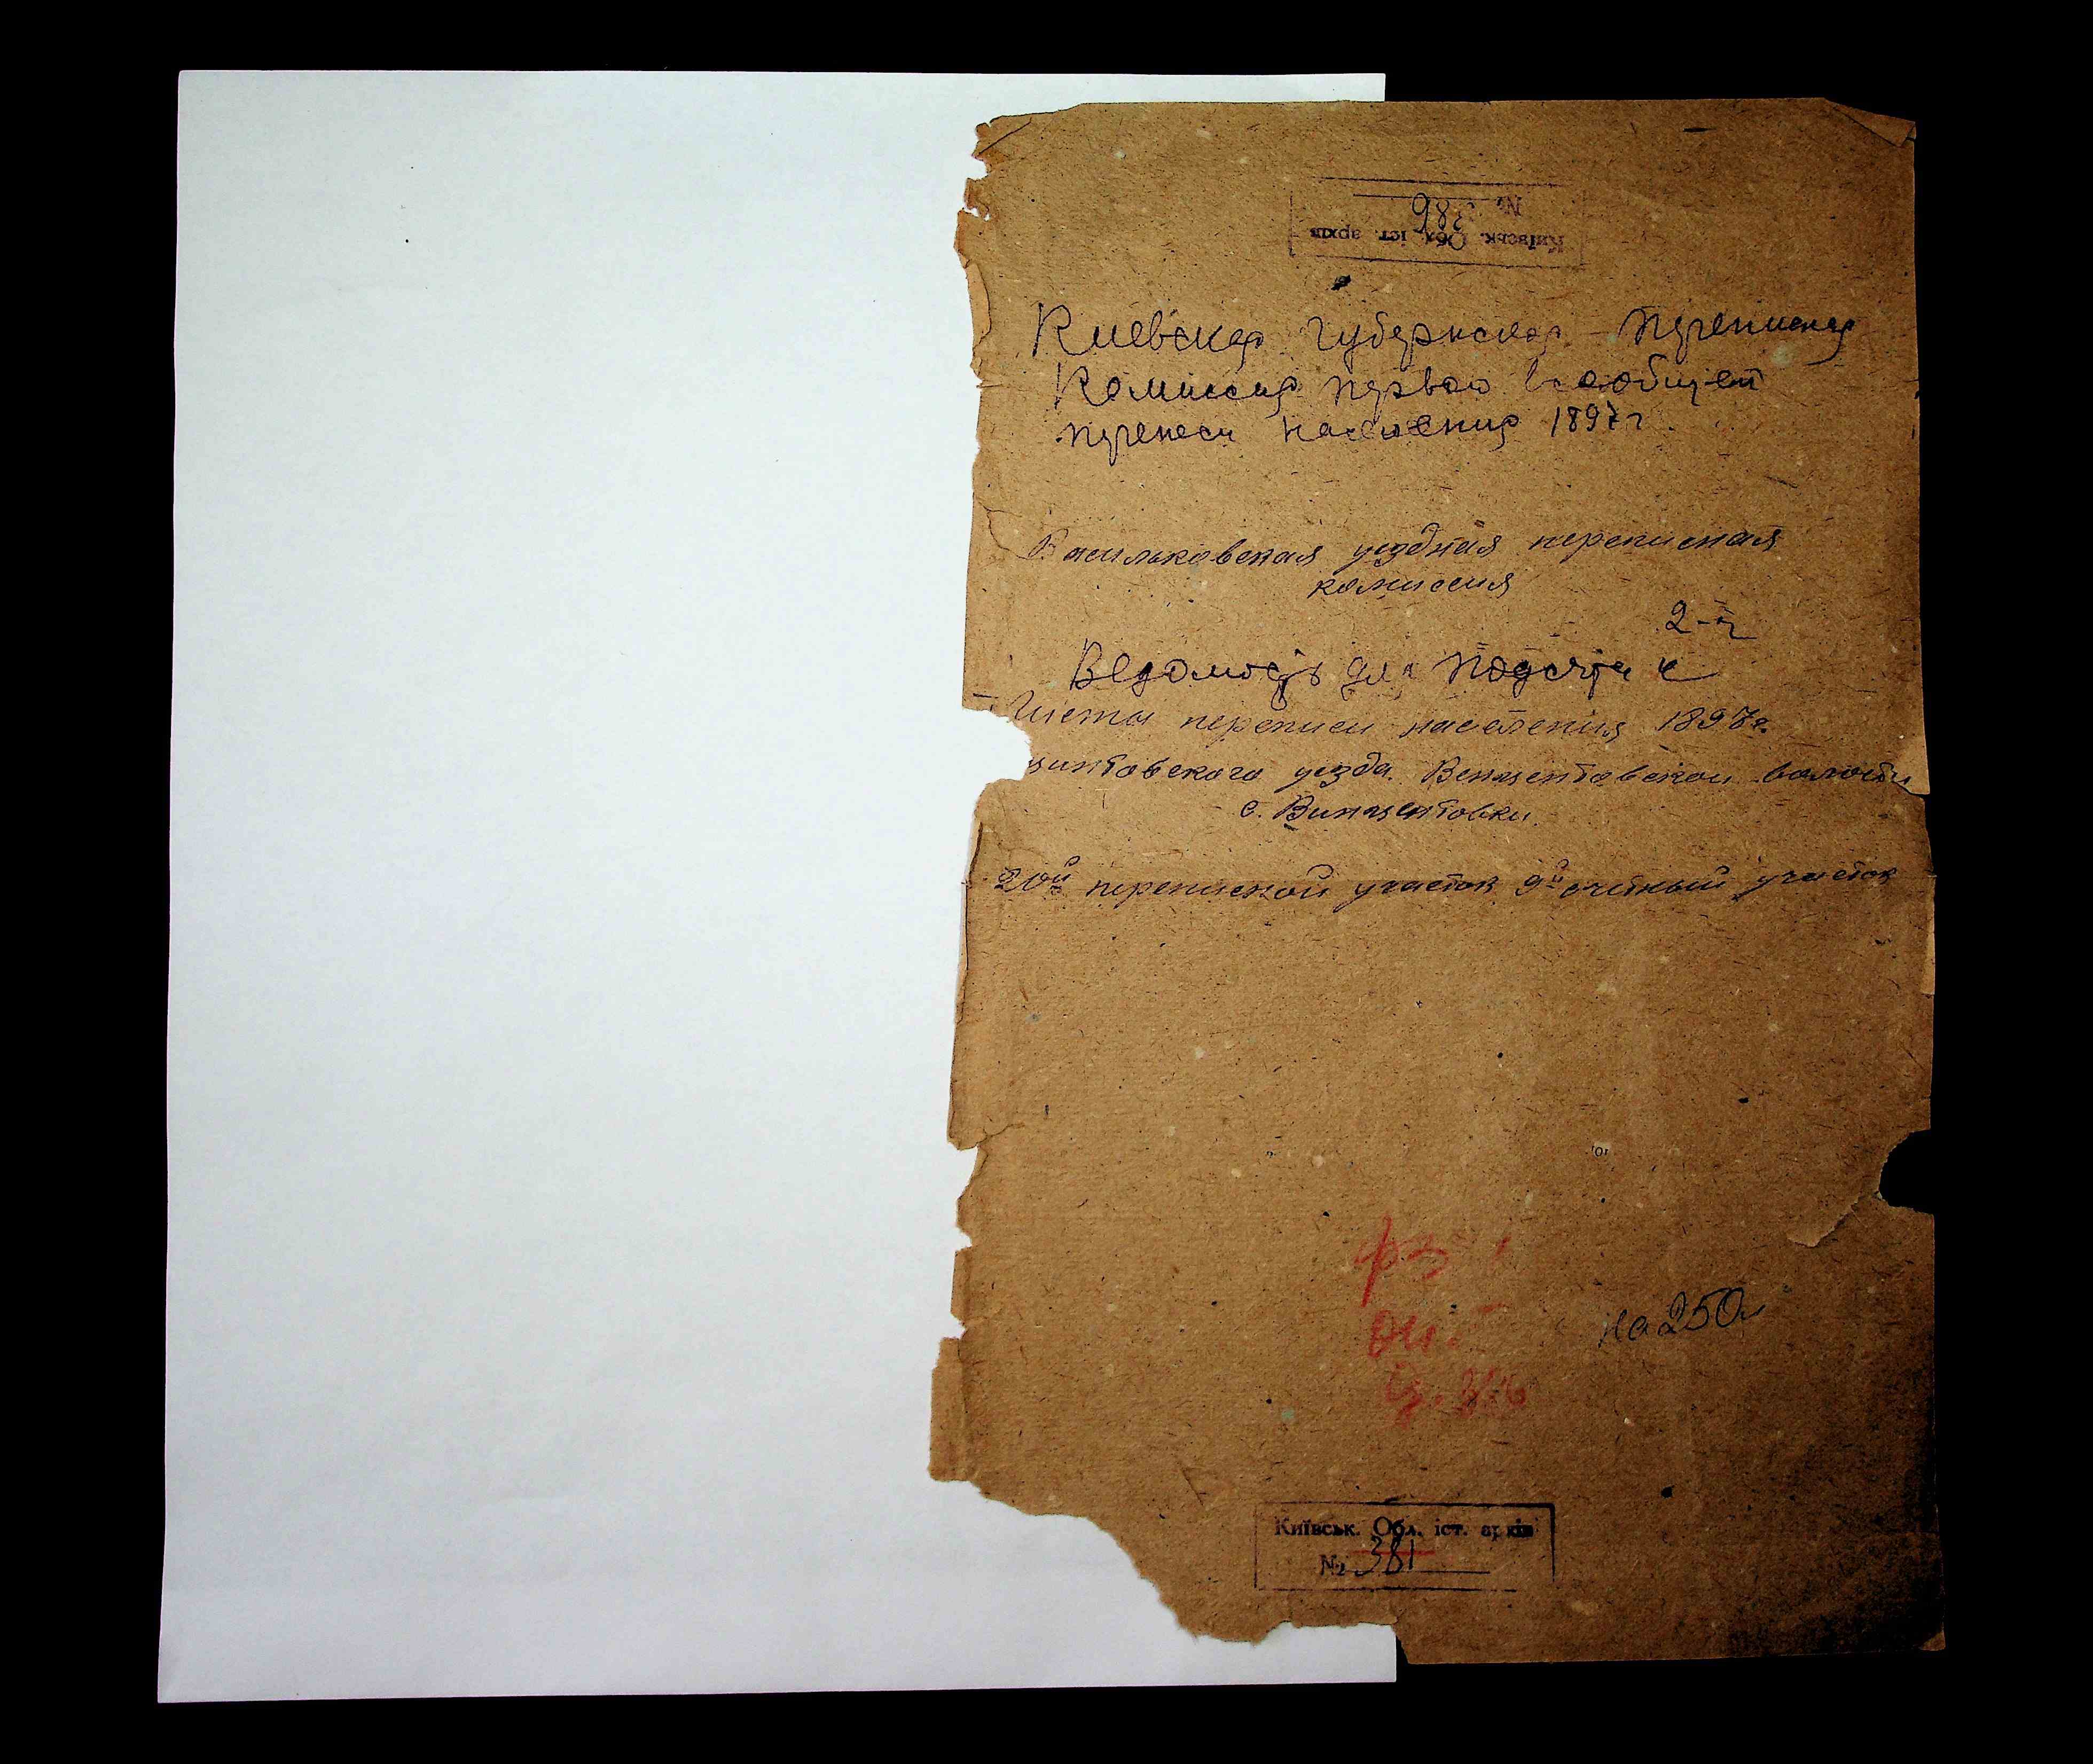 № 386
Київськ. Обл. іст. архів
Киевская Губернская Переписная
Комиссия первой всеобщей
переписи населения 1897 г.
Васильковская уездная переписная
комиссия
2-й
Ведомость для подсчета и
Листы переписи населения 1897 г.
уезда. Венцентовской волости
с. Винцентовки
20й переписной участок 9й счетный участок
на 250
Київськ. Обл. іст. архів
№ 381